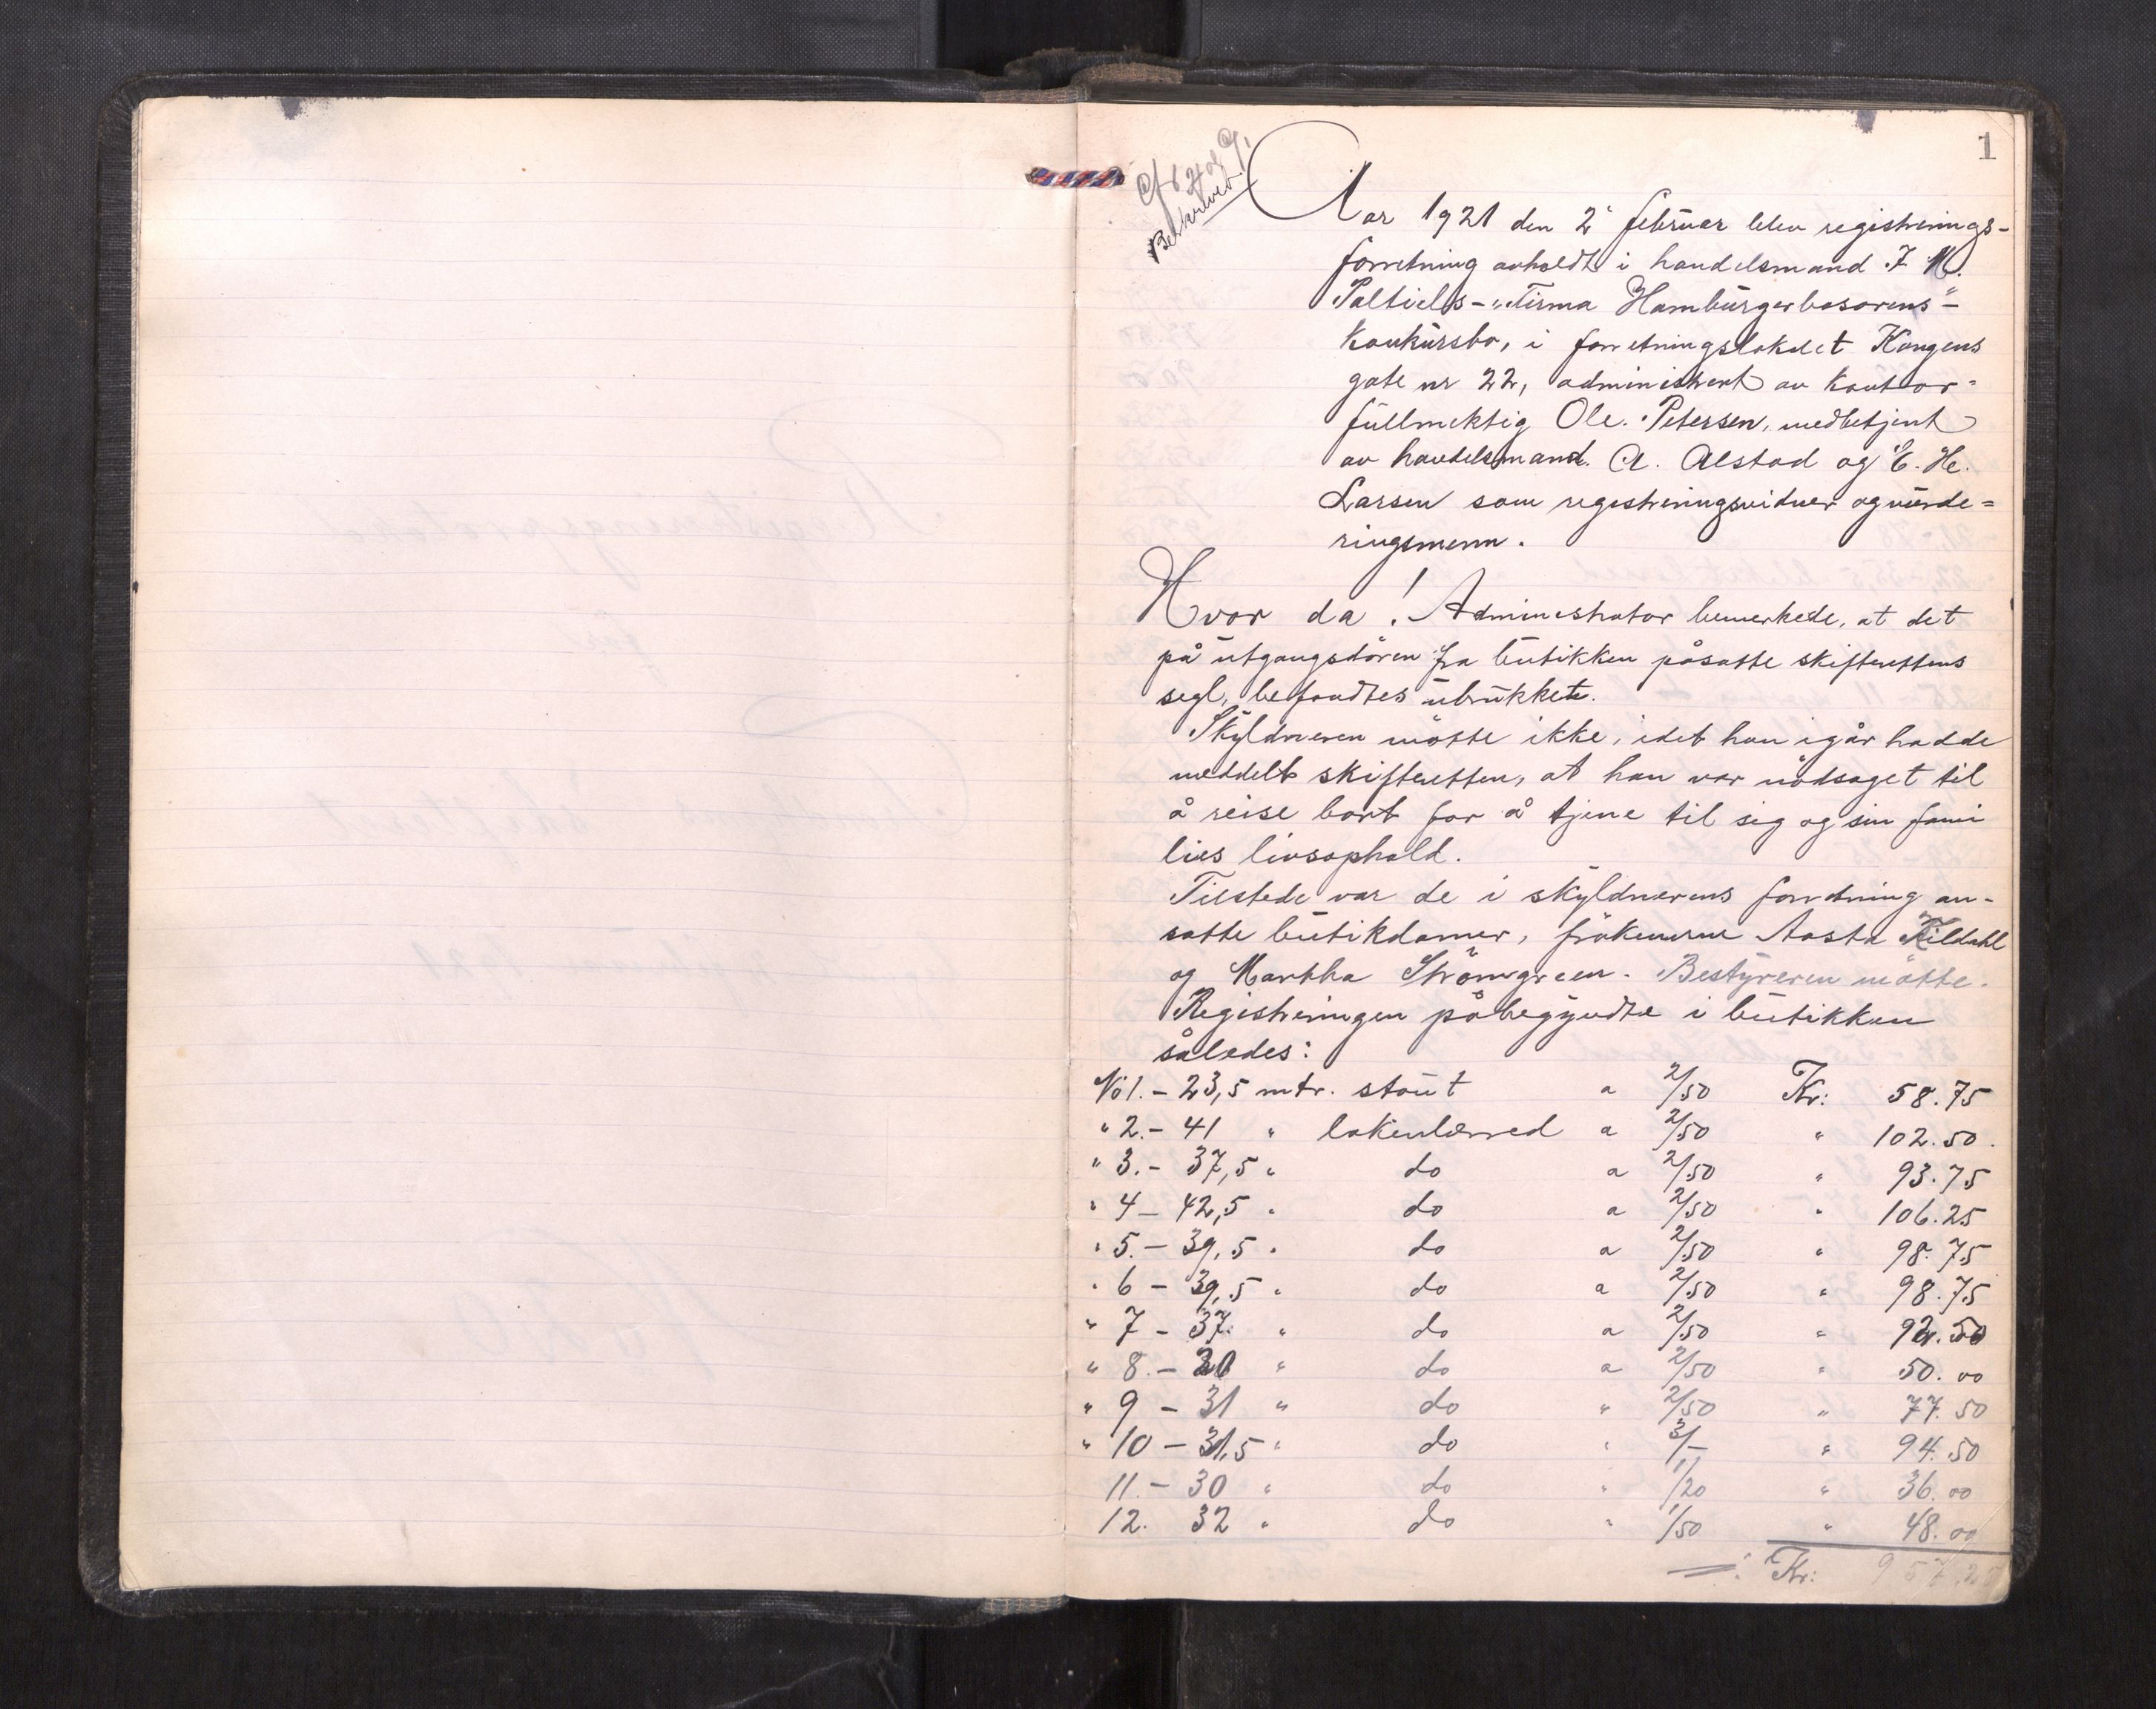 1
Beskrevet
Aar 1921 den 2' februar blev registrerings-
forretning avholdt i handelsmand I. M.
Paltiels - "Firma Hamburgerbasarens" -
konkursbo, i forretningslokalet Kongens
gate nr 22, administrert av kontor=
fullmektig Ole Petersen, medbetjent
av handelsmand. A. Alstad og E. H.
Larsen som registreringsvidner og vurde=
ringsmenn.
Hvor da! Administrator bemerkede, at det
på utgangsdøren fra butikken påsatte skifterettens
segl, befandtes ubrukket.
Skyldneren møtte ikke, idet han igår hadde
meddelt skifteretten, at han var nødsaget til
å reise bort for å tjene til sig og sin fami
lies livsophold.
Tilstede var de i skyldnerens forretning an-
satte butikdamer, frøknerne Aasta Kildahl
og Martha Strømgreen. Bestyreren møtte.
Registreringen påbegyndte i butikken
således:
No 1. - 23,5 mtr. stout a 2/50 Kr: 58.75
" 2. - 41 " lakenlerred a 2/50 " 102.50.
" 3. - 37,5 " do a 2/50 " 93.75
" 4 - 42,5 " do a 2/50 " 106.25
" 5. - 39,5 " do a 2/50 " 98.75
" 6 - 39,5 " do a 2/50 " 98.75
" 7 - 37. " do a 2/50 " 92.50
" 8. - 20 " do a 2/50 " 50.00
" 9 - 31 " do " 2/50 " 77.50
" 10 - 31,5 " do " 3/- " 94.50
11. - 30 " do " 1/20 " 36.00
12. 32 " do " 1/50 " 48.00
Kr: 957.25